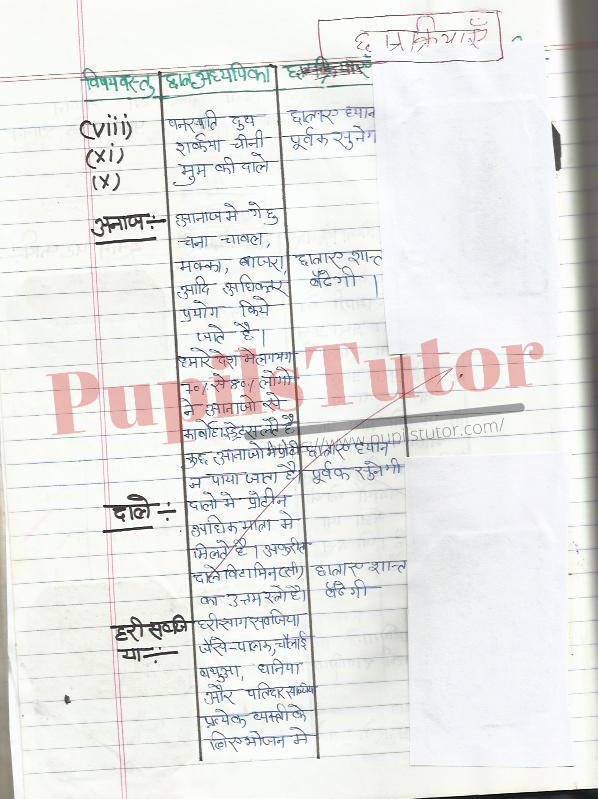 छ प्रक्रियाएँ
विषयवस्तु छात्रअध्यपिका
(viii) वनस्पति दुध छात्राए ध्यान
(xi) शर्करा चीनी पूर्वक सुनेग
(x) मुम की दाले
अनाज:- अनाज मे गेहु
चना चावल,
मक्का, बाजरा, छात्राए शान्त
आदि अधिकतर बैठेगी ।
प्रयोग किये
जाते है ।
हमारे देश मे लगभग
70% से 80% लोगो
ने अनाजो से
कार्बोहाइड्रेटस लेते है
कुछ अनाजो मे प्रोटी छात्राए ध्यान
न पाया जाता है। पूर्वक सुनेगी
दाले:- दालो मे प्रोटीन
अधिक मात्रा मे
मिलते है । अंकुरीत
दाले विटामिन(सी) छात्राए शान्त
का उत्तम स्त्रो है। बैठेगी
हरी सब्जि हरी साग सब्जिया
या:- जैसे-पालक, चौलाई
बथुआ, धनिया
और पत्तिदार सब्जिया
प्रत्येक व्यक्ती के
लिए भोजन मे
PupilsTutor
https://www.pupilstutor.com/